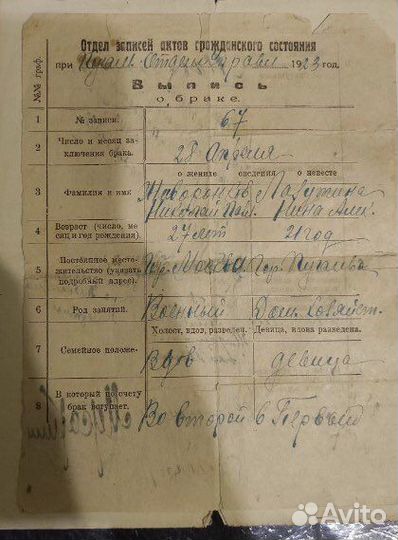 Отдел записей актов гражданского состояния
при 1923 год.
Выпись
о браке.
№№ граф.
1 № записи. 67
2 Число и месяц заключения брака. 28 Апреля
о женихе сведения о невесте
3 Фамилия и имя Лабутина
Николай Нина Алек.
4 Возраст (число, месяц и год рождения). 27 лет 21 год
5 Постоянное местожительство (указать подробный адрес). Гор. Москва Гор.
6 Род занятий. Военный Дом. Хозяйст.
Холост, вдов, разведен. Девица, вдова разведена.
7 Семейное положе- Вдов девица
8 В который по счету брак вступает. Во второй в Первый
Avito